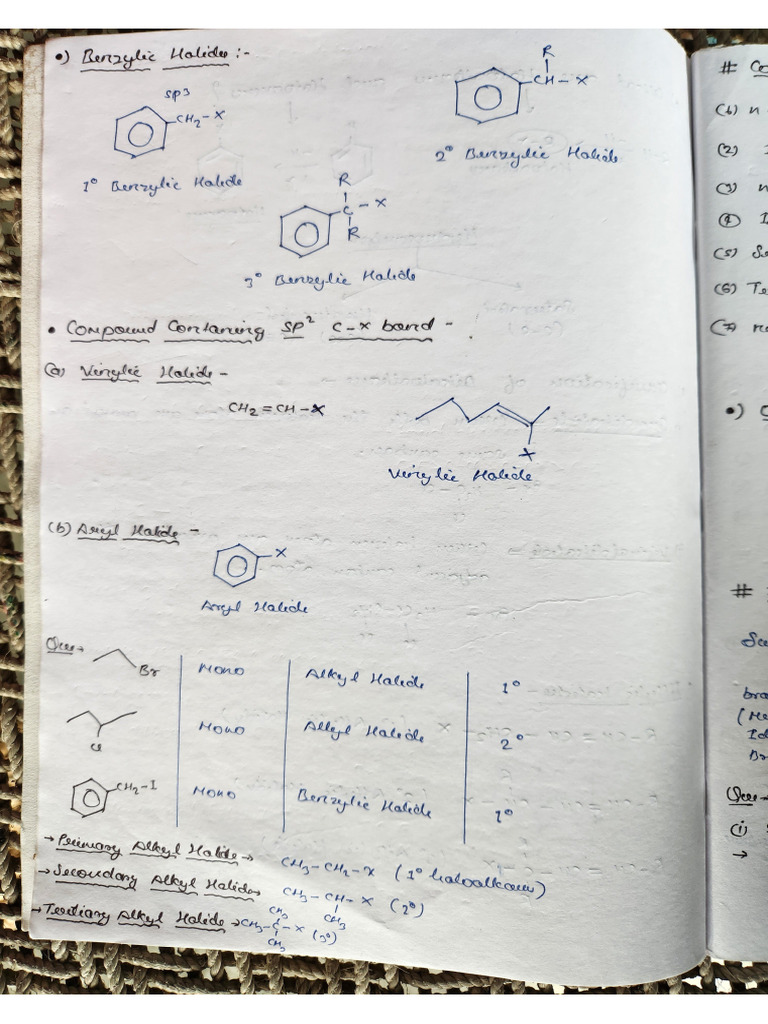 •) Benzylic Halide :-
sp3
CH2-X
1° Benzylic Halide
R
CH-X
2° Benzylic Halide
R
C-X
R
3° Benzylic Halide
• Compound Containing sp2 C-X bond -
(a) Vinylic Halide -
CH2=CH-X
X
Vinylic Halide
(b) Aryl Halide -
X
Aryl Halide
Ques→
Br Mono Alkyl Halide 1°
Cl Mono Alkyl Halide 2°
CH2-I Mono Benzylic Halide 1°
→Primary Alkyl Halide→ CH3-CH2-X (1° haloalkane)
→Secondary Alkyl Halide→ CH3-CH-X (2°)
CH3
CH3
→Tertiary Alkyl Halide→ CH3-C-X (3°)
CH3
#
(2)
(3) n
(5) Se
(6) Te
(7)
•)
#
(He
Br
Ques→
(i)
→